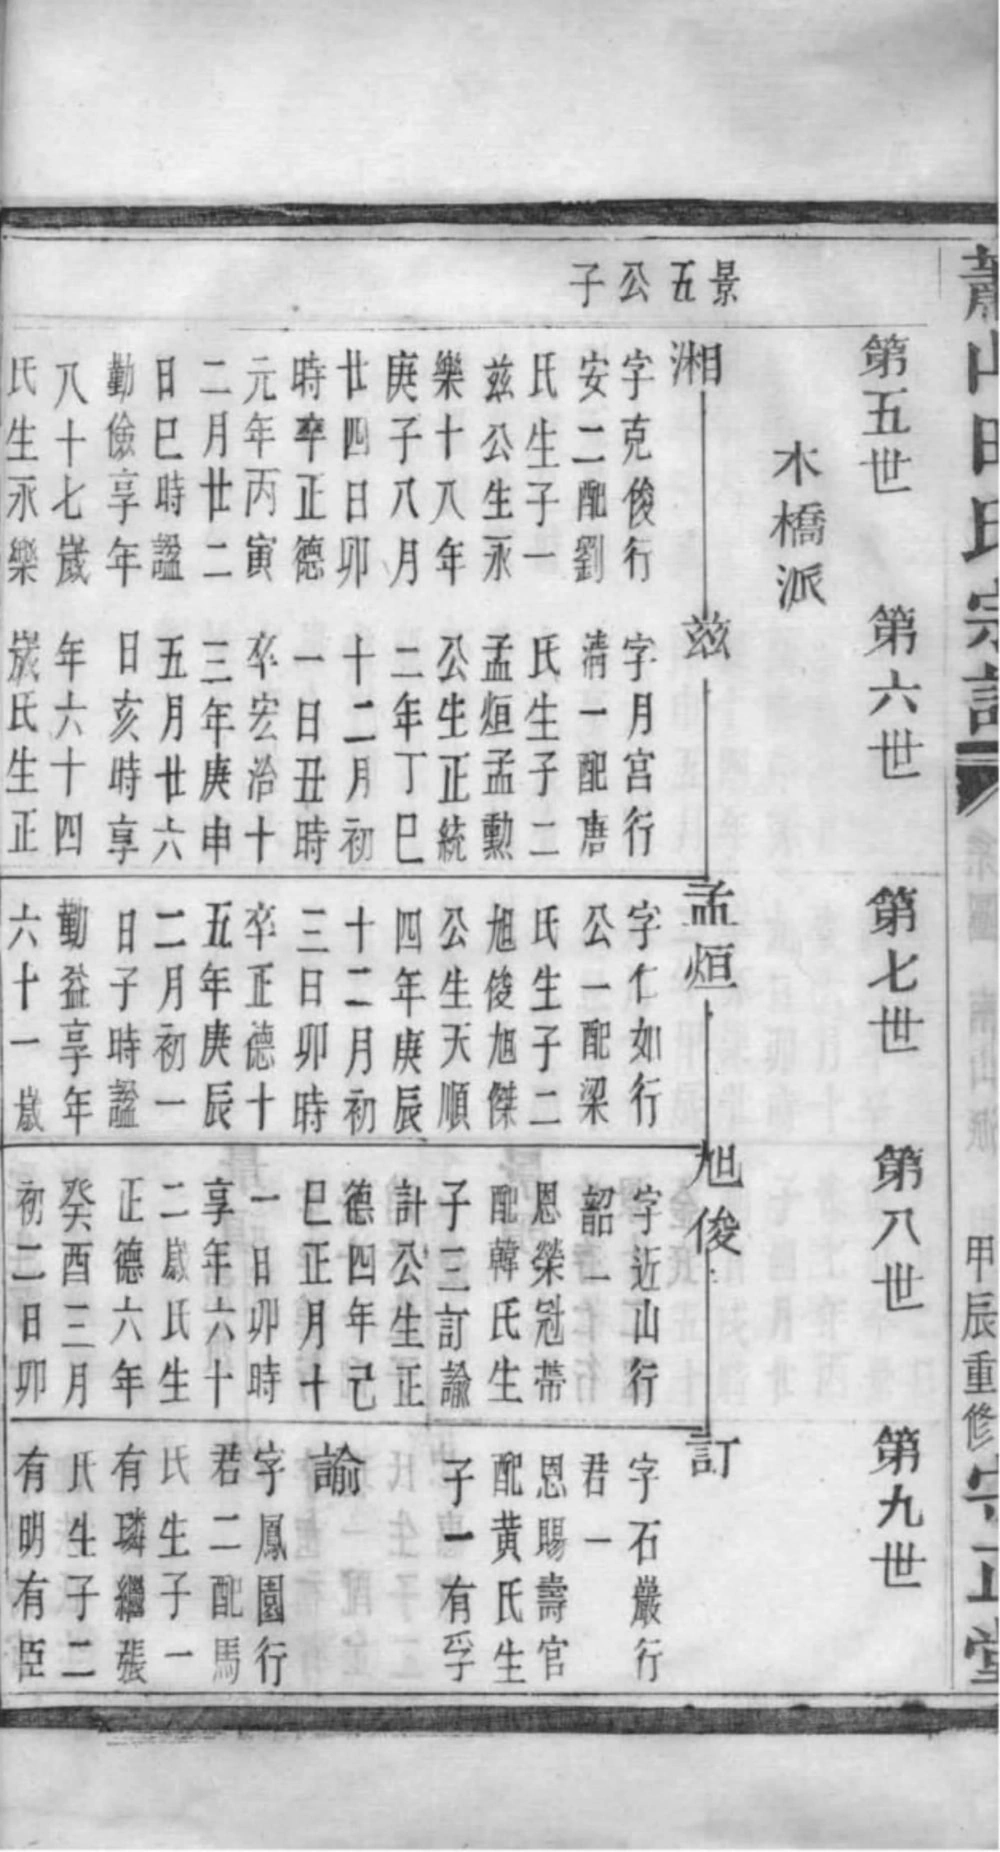 蕭山田氏宗譜
甲辰重修
守正堂
第五世
第六世
第七世
第八世
第九世
木橋派
景五公子
湘
字克俊行
安二配劉
氏生子一
兹公生永
樂十八年
庚子八月
廿四日卯
時卒正德
元年丙寅
二月廿二
日巳時諡
勤儉享年
八十七歲
氏生永樂
兹
字月宮行
淸一配唐
氏生子二
孟烜孟勳
公生正統
二年丁巳
十二月初
一日丑時
卒宏治十
三年庚申
五月廿六
日亥時享
年六十四
歲氏生正
孟烜
字仁如行
公一配梁
氏生子二
旭俊旭傑
公生天順
四年庚辰
十二月初
三日卯時
卒正德十
五年庚辰
二月初一
日子時諡
勤益享年
六十一歲
旭俊
字近山行
韶一
恩榮冠帶
配韓氏生
子三訂諭
計公生正
德四年己
巳正月十
一日卯時
享年六十
二歲氏生
正德六年
癸酉三月
初二日卯
訂
字石巖行
君一
恩賜壽官
配黄氏生
子一有孚
諭
字鳳園行
君二配馬
氏生子一
有璘繼張
氏生子二
有明有臣